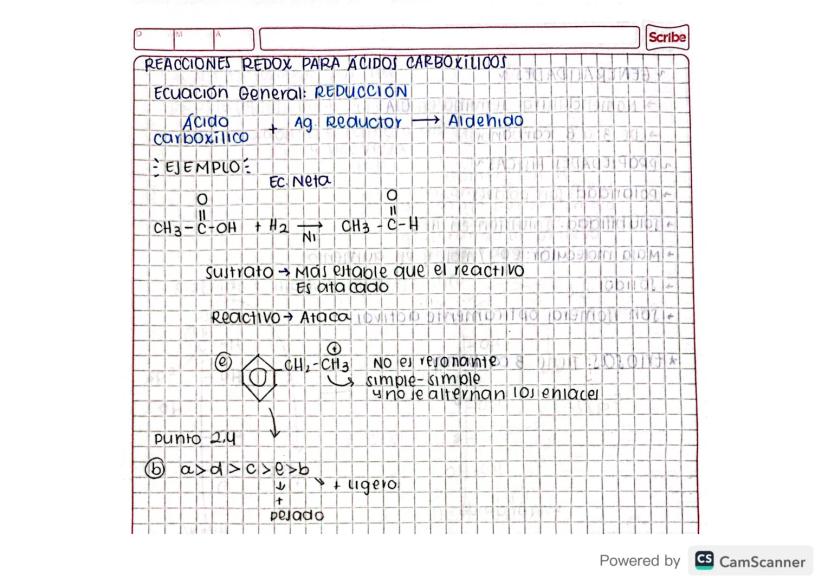 D M A
Scribe
REACCIONES REDOX PARA ÁCIDOS CARBOXÍLICOS
Ecuación General: REDUCCIÓN
Ácido carboxílico + Ag. Reductor → Aldehido
EJEMPLO:
Ec. Neta
O O
|| ||
CH3-C-OH + H2 → CH3-C-H
Ni
Sustrato → Más estable que el reactivo
Es atacado
Reactivo → Ataca
ⓔ CH2-CH3 ⊕ No es resonante
simple-simple
y no se alternan los enlaces
Punto 2.4
ⓑ a>d>c>e>b
↓ ↘ + ligero
+
pesado
Powered by CS CamScanner